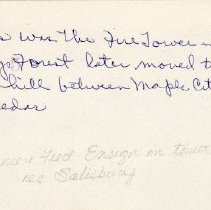 was The Fire Tower
Forest later moved t
hill between Maple Cit
edar
Fred Ensign in tower
nee Salisbury